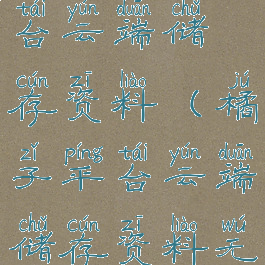 tái yún duān chǔ
台云端储
cún zī liào jú
存资料（橘
zǐ píng tái yún duān
子平台云端
chǔ cún zī liào wú
储存资料无